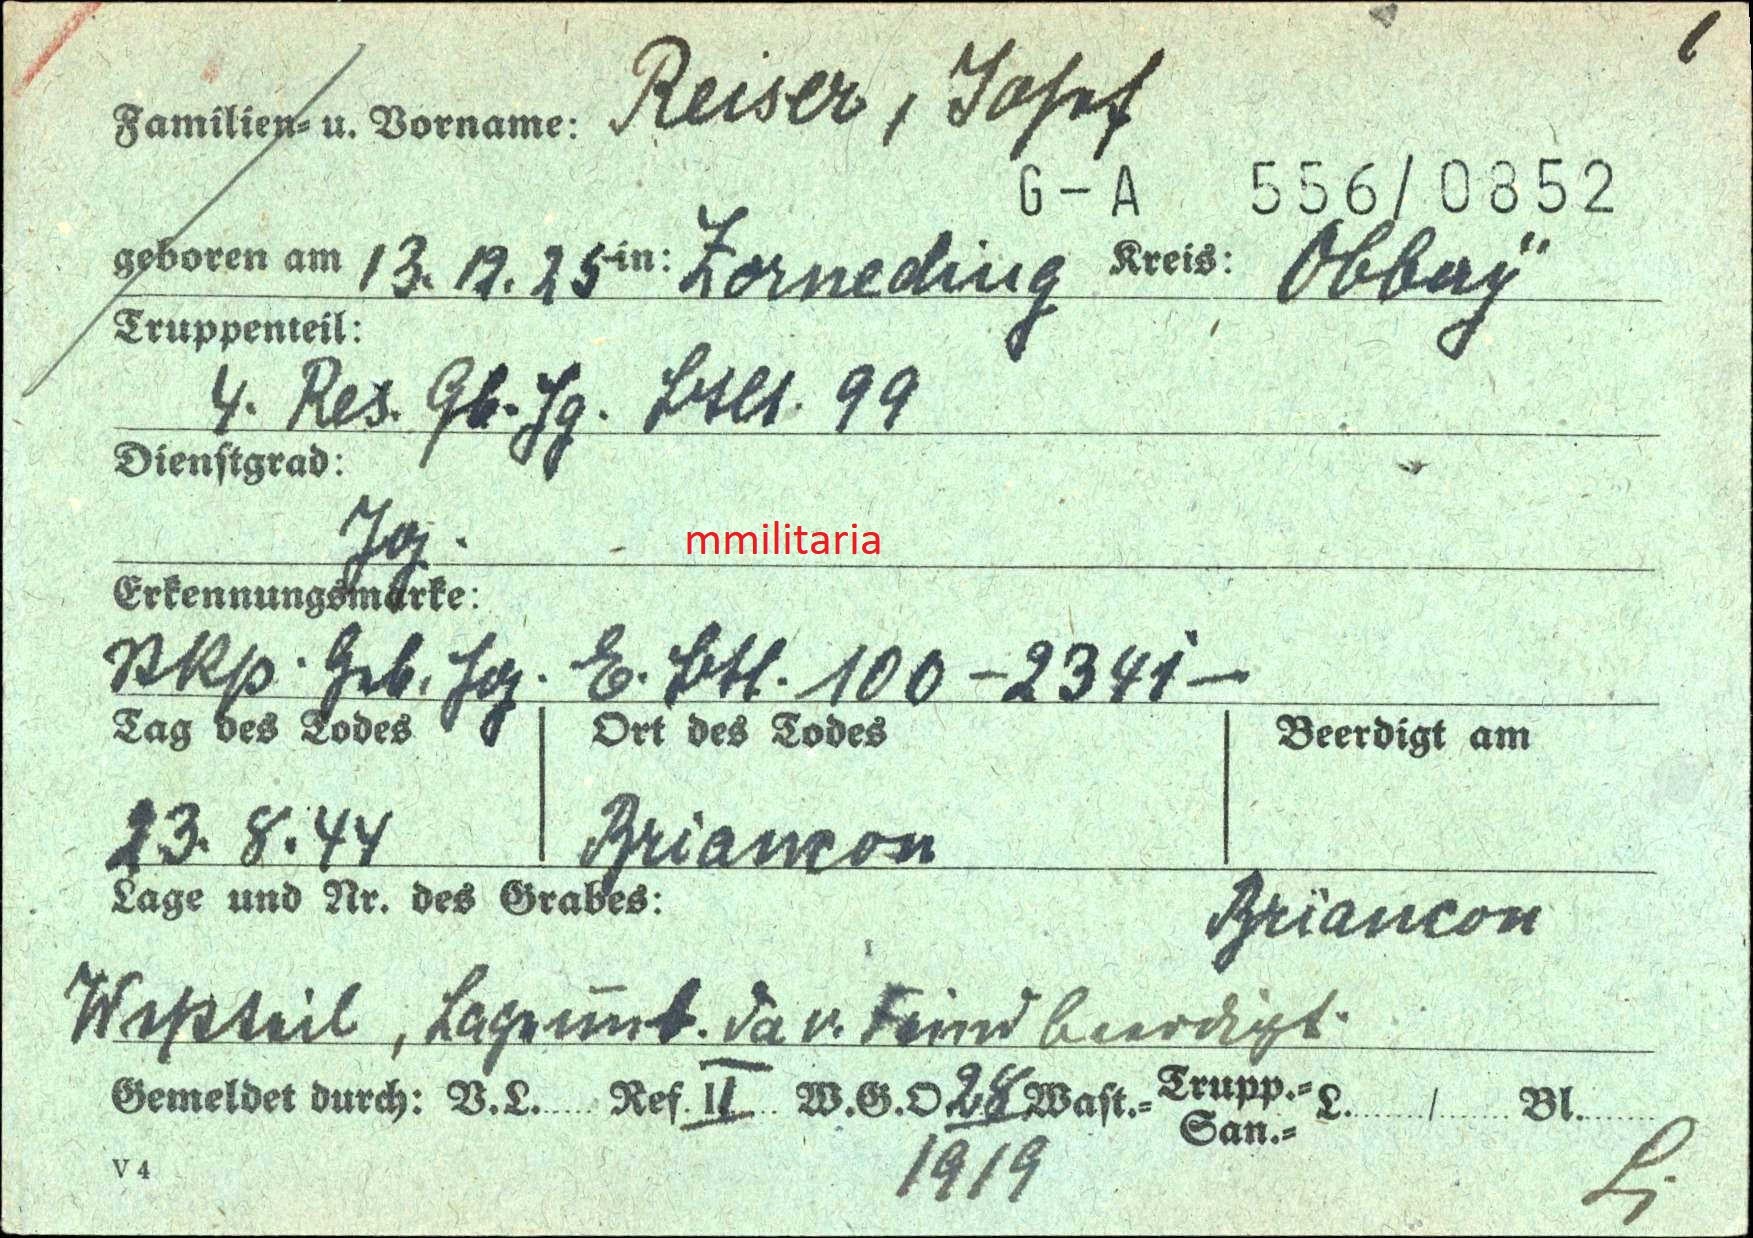 1
Familien- u. Vorname: Reiser, Josef
G-A 556/0852
geboren am 13. 12. 25 in: Zorneding Kreis: Obbay"
Truppenteil:
4. Res. Gb. Jg. Btl. 99
Dienstgrad:
Jg.
mmilitaria
Erkennungsmarke:
Geb. Jg. E. Btl. 100 - 2341 -
Tag des Todes Ort des Todes Beerdigt am
23. 8. 44 Briancon
Lage und Nr. des Grabes: Briancon
Westteil, Lage unb. da v. Feind beerdigt.
Gemeldet durch: V.L. Ref. II W.G.O 28 Wast.- Trupp.- San.- L. / Bl.
1919
V 4